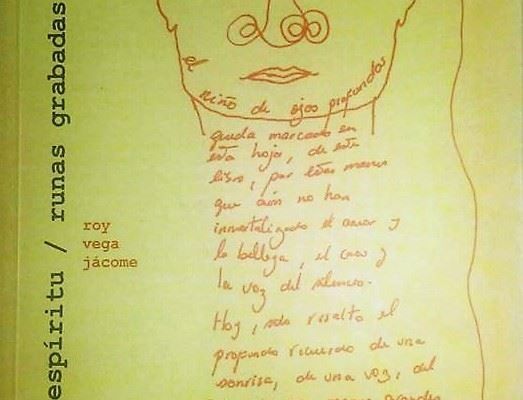 espíritu / runas grabadas
roy
vega
jácome
el niño de ojos profundos
queda marcado en
esta hoja, de este
libro, por estas manos
que aún no han
inmortalizado el amor y
la belleza, el caos y
la voz del silencio.
Hoy, solo resalto el
profundo recuerdo de una
sonrisa, de una voz, del